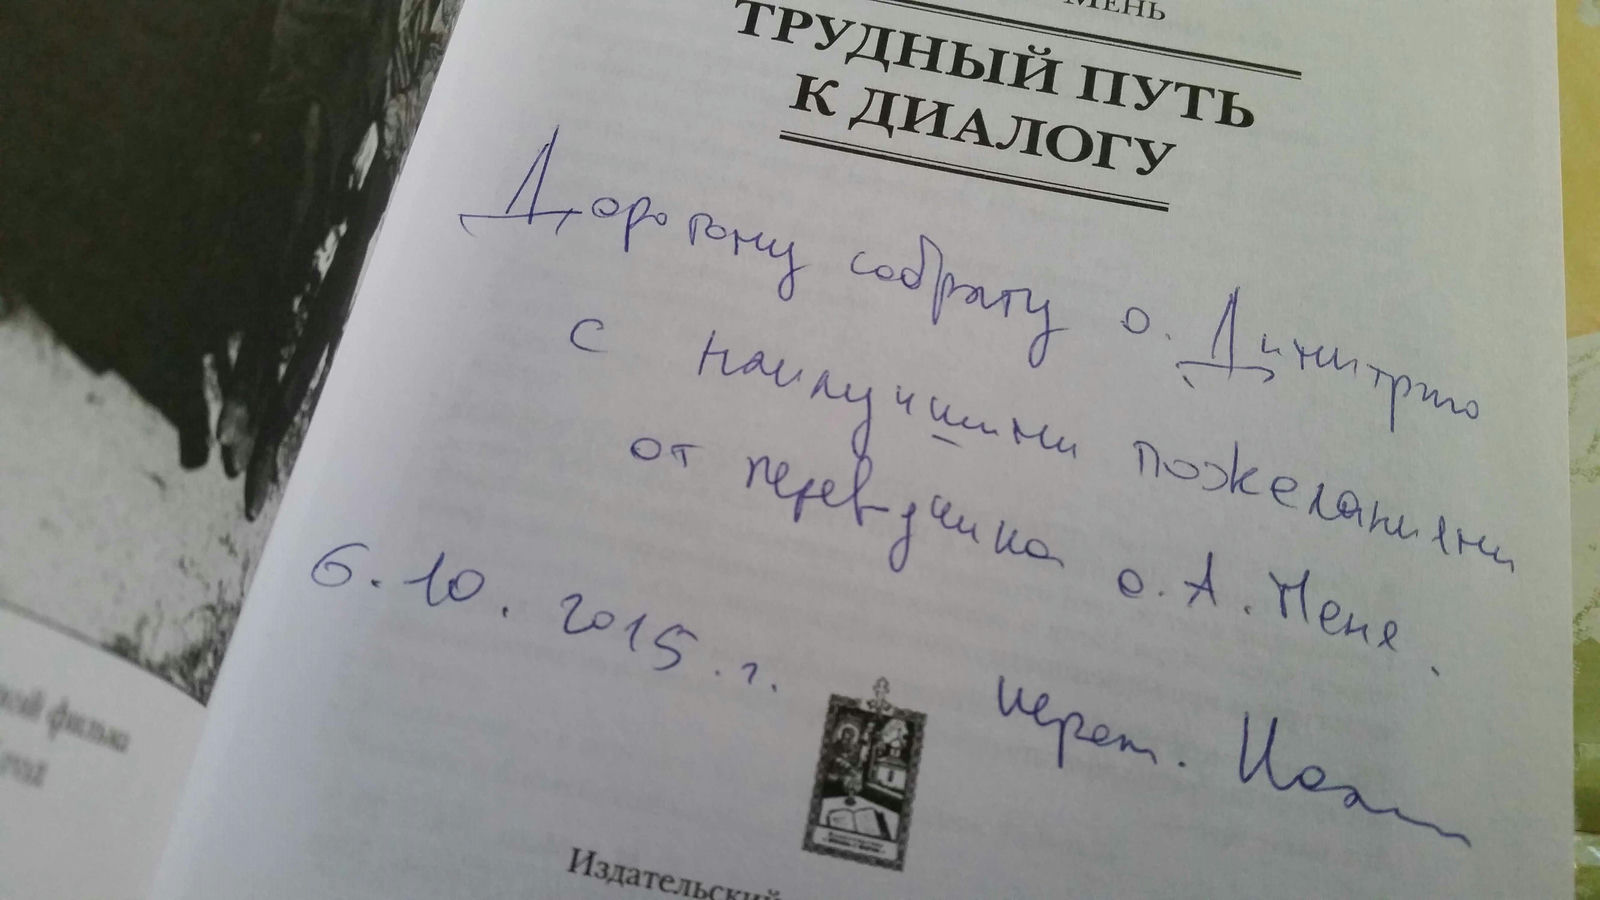 МЕНЬ
ТРУДНЫЙ ПУТЬ
К ДИАЛОГУ
Дорогому собрату о. Димитрию
с наилучшими пожеланиями
от переводчика о. А. Меня.
6.10.2015.г.
иерем. Иоанн
Издательский
фильма